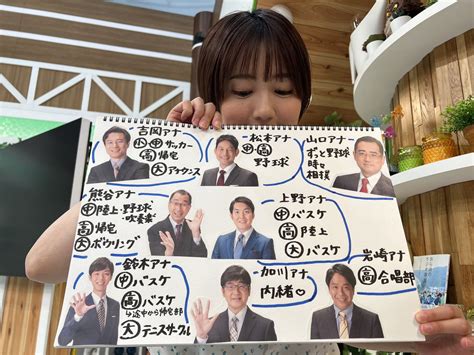 吉岡アナ
小 中 サッカー
高 帰宅
大 アナウンス
松本アナ
中 高
野球
山口アナ
ずっと野球
時々
相撲
熊谷アナ
中 陸上・野球
吹奏楽
高 帰宅
大 ボウリング
上野アナ
中 バスケ
高 陸上
大 バスケ
鈴木アナ
中 バスケ
高 バスケ
↳途中から帰宅部
大 テニスサークル
加川アナ
内緒♡
岩崎アナ
高 合唱部